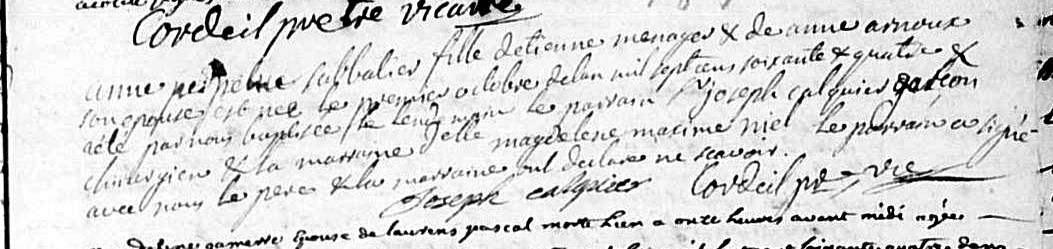 Cordeil pretre vicaire
anne sabbatier fille detienne menager & de anne arnoux
son epouse est née le premier octobre de lan mil sept cens soixante & quatre &
a été par nous baptisée le lendemain le parrain joseph calquier garcon
chirurgien & la marraine delle magdelene maxime niel le parrain a signé
avec nous le pere & la marraine ont declare ne scavoir.
Joseph calquier Cordeil ptre vic
epouse de laurens pascal morte hier a onze heures avant midi agée